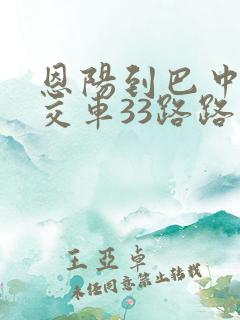 恩陽到巴中
交車33路路
王亞卓
未经同意禁止转载